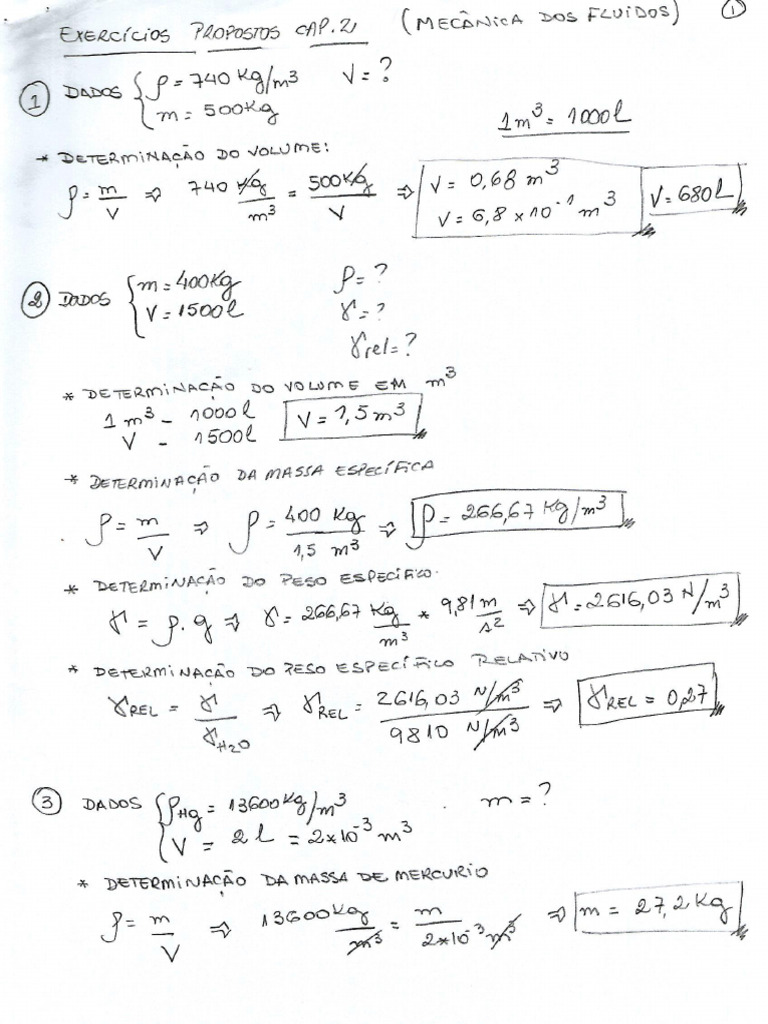 EXERCÍCIOS PROPOSTOS CAP.2 (MECÂNICA DOS FLUÍDOS) ①
① DADOS { ρ = 740 Kg/m³ V = ?
m = 500Kg
1m³ = 1000l
* DETERMINAÇÃO DO VOLUME:
ρ = m/V ⇒ 740 Kg/m³ = 500Kg/V ⇒ V = 0,68 m³ V = 680l
V = 6,8 × 10⁻¹ m³
② DADOS { m = 400Kg ρ = ?
V = 1500l γ = ?
γrel = ?
* DETERMINAÇÃO DO VOLUME EM m³
1 m³ - 1000l V = 1,5 m³
V - 1500l
* DETERMINAÇÃO DA MASSA ESPECÍFICA
ρ = m/V ⇒ ρ = 400 Kg/1,5 m³ ⇒ ρ = 266,67 Kg/m³
* DETERMINAÇÃO DO PESO ESPECÍFICO.
γ = ρ.g ⇒ γ = 266,67 Kg/m³ * 9,81 m/s² ⇒ γ = 2616,03 N/m³
* DETERMINAÇÃO DO PESO ESPECÍFICO RELATIVO
γREL = γ/γH2O ⇒ γREL = 2616,03 N/m³/9810 N/m³ ⇒ γREL = 0,27
③ DADOS { ρHg = 13600Kg/m³ m = ?
V = 2l = 2*10⁻³ m³
* DETERMINAÇÃO DA MASSA DE MERCURIO
ρ = m/V ⇒ 13600Kg/m³ = m/2*10⁻³ m³ ⇒ m = 27,2 Kg